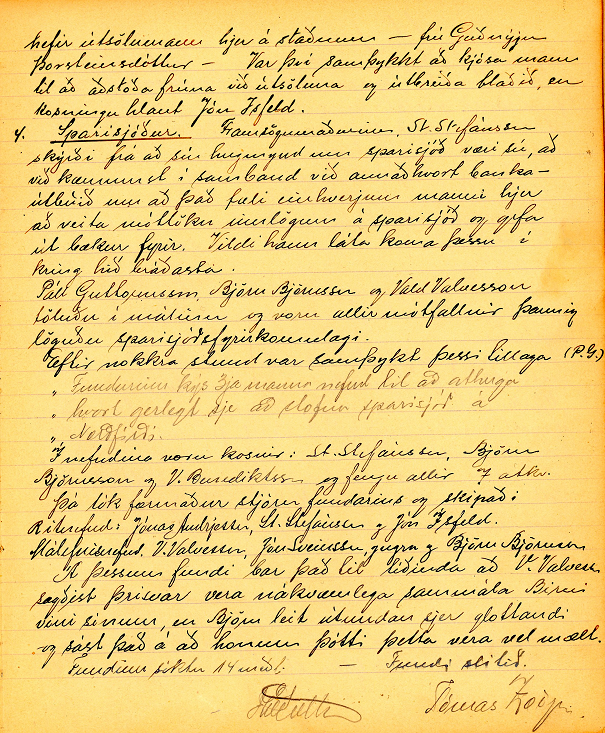 hefir útsölumann hjer á staðnum — frú Guðnýju
Þorsteinsdóttur — Var því samþykkt að kjósa mann
til að aðstoða frúna við útsöluna og útbreiða blaðið, en
kosningu hlaut Jón Ísfeld.
4. Sparisjóður. Framsögumaðurinn, St. Stefánsson
skýrði frá að sín hugmynd um sparisjóð væri sú, að
við kæmumst í samband við annaðhvort banka-
útbúið um að það fæli einhverjum manni hjer
að veita móttöku innlögum á sparisjóð og gefa
út bækur fyrir. Vildi hann láta koma þessu í
kring hið bráðasta.
Páll Guttormsson, Björn Björnsson og Vald Valvesson
töluðu í málinu og voru allir mótfallnir þannig
löguðu sparisjóðsfyrirkomulagi.
Eftir nokkra stund var samþykt þessi tillaga (P.G.)
„ Fundurinn kýs 3ja manna nefnd til að athuga
„ hvort gerlegt sje að stofna sparisjóð á
„ Norðfirði.
Í nefndina voru kosnir: St. Stefánsson, Björn
Björnsson og V. Benediktss og fengu allir 7 atkv.
Þá tók formaður stjórn fundarins og skipaði
Ritnefnd: Jónas Andrjesson, St. Stefánsson og Jón Ísfeld.
Málefnanefnd. V. Valvesson, Jón Sveinsson, yngra og Björn Björnsson
Á þessum fundi bar það til tíðinda að V. Valvess
sagðist þrisvar vera nákvæmlega sammála Birni
vini sínum, en Björn leit útundan sjer glottandi
og sást það á að honum þótti þetta vera vel mælt.
Fundinn sóktu 14 meðl. — Fundi slitið.
Tómas Zoëga